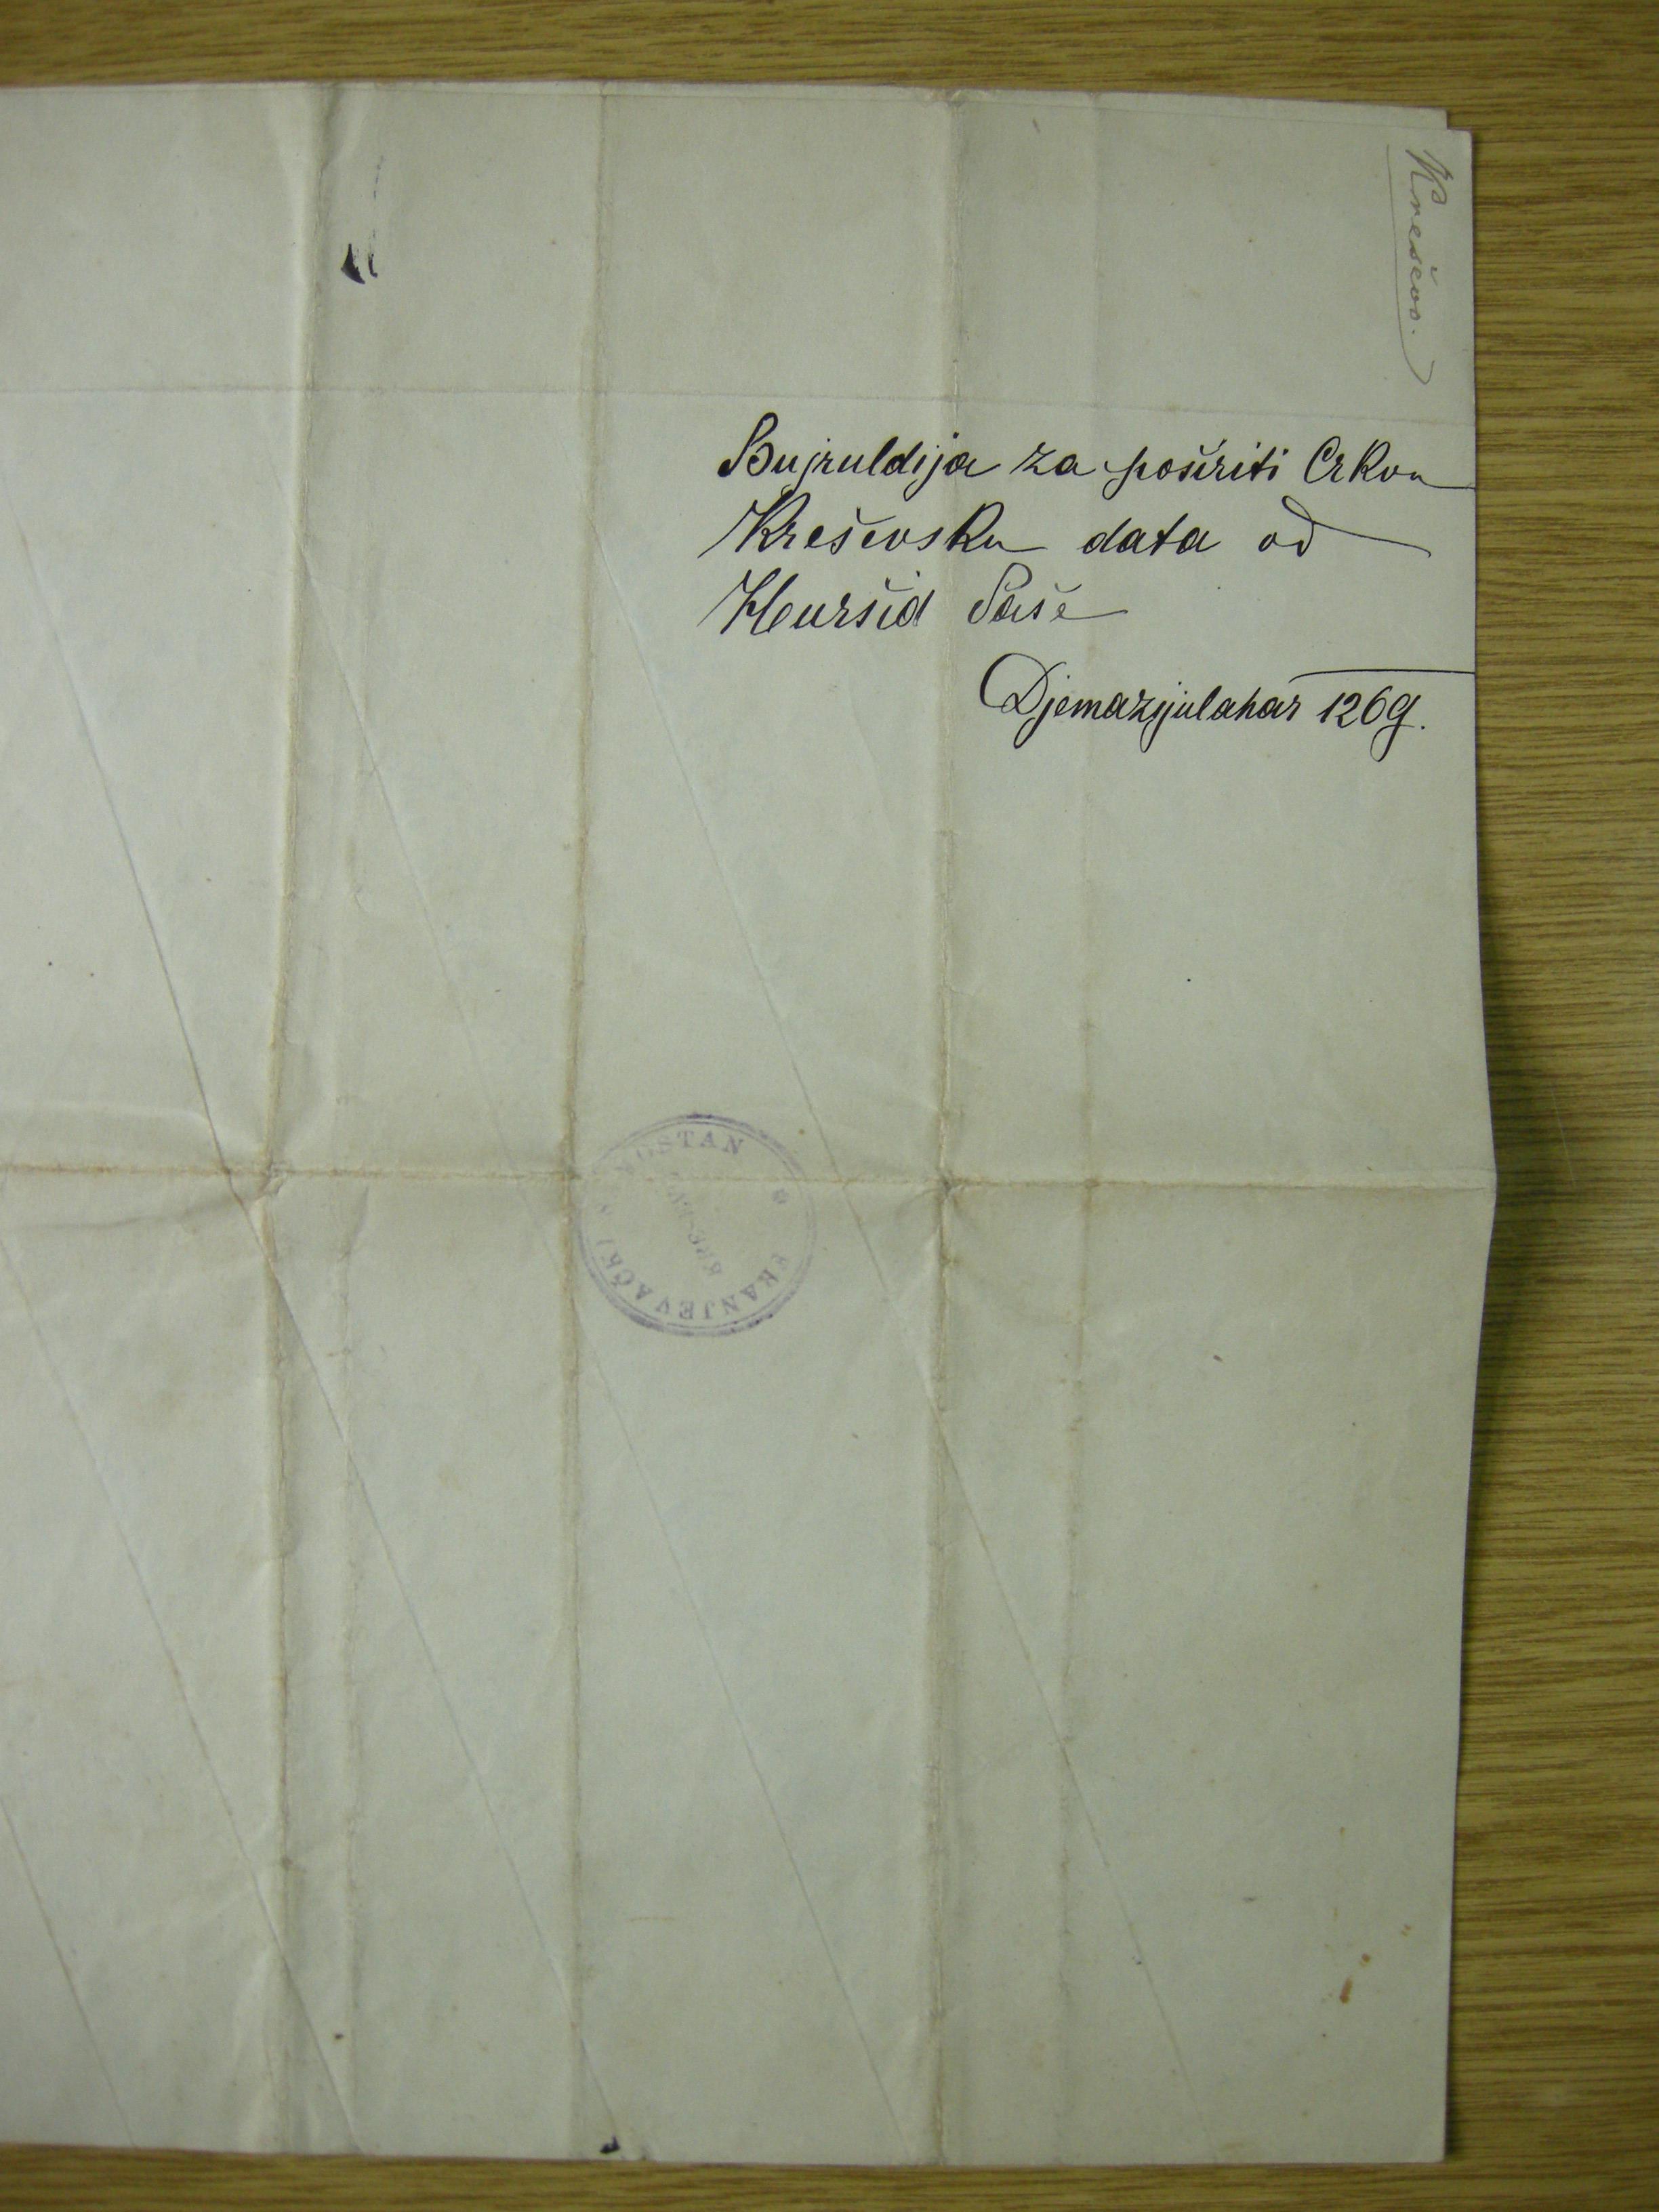 Kreševo.
Bujruldija za poširiti Crkvu
Kreševsku data od
Huršid Paše
Djemazijulahar 1269.
FRANJEVAČKI SAMOSTAN
KREŠEVO